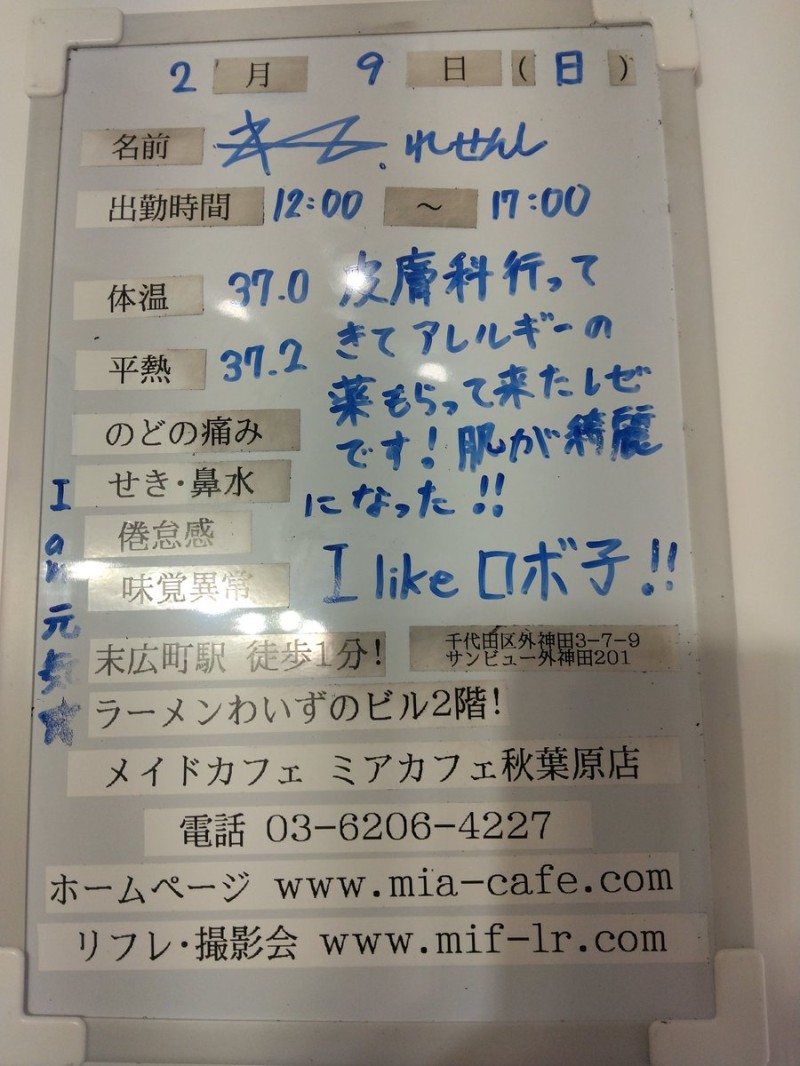 2 月 9 日 (日)
名前 れせんし
出勤時間 12:00 ～ 17:00
体温 37.0
平熱 37.2
皮膚科行って
きてアレルギーの
薬もらって来たレゼ
です!肌が綺麗
になった!!
のどの痛み
せき・鼻水
倦怠感
味覚異常
I like ロボ子!!
I am 元気★
末広町駅 徒歩1分!
千代田区外神田3-7-9
サンビュー外神田201
ラーメンわいずのビル2階!
メイドカフェ ミアカフェ秋葉原店
電話 03-6206-4227
ホームページ www.mia-cafe.com
リフレ・撮影会 www.mif-lr.com